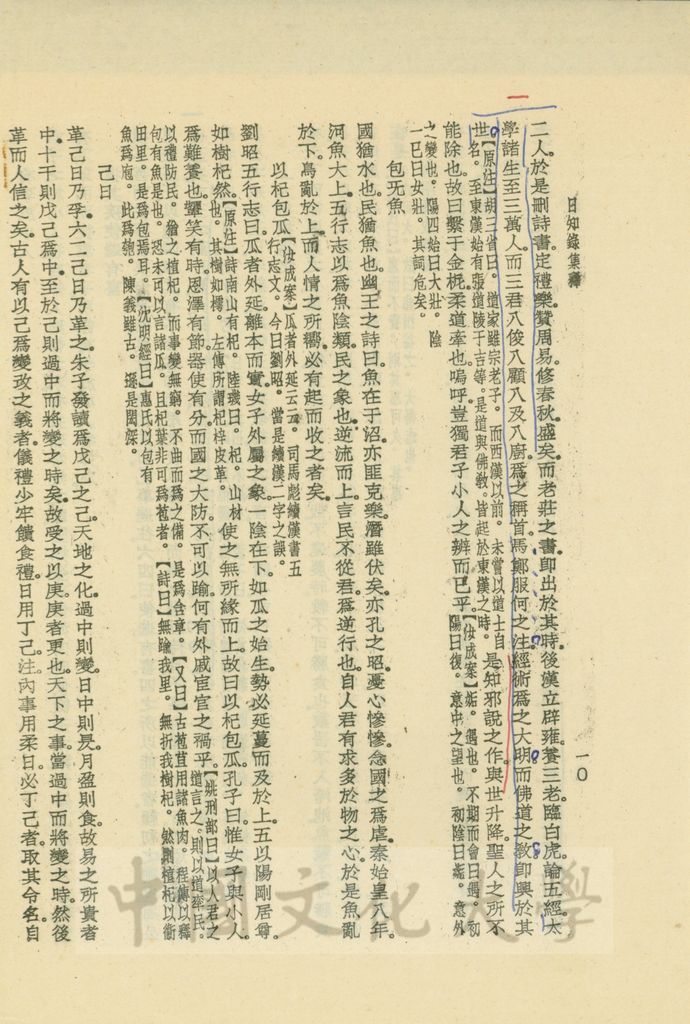 日知錄集釋
一〇
二人。於是刪詩書。定禮樂。贊周易。修春秋。盛矣。而老莊之書。即出於其時。後漢立辟雍。養三老。臨白虎。論五經。太
學諸生至三萬人。而三君八俊八顧八及八廚爲之稱首。馬鄭服何之注。經術爲之大明。而佛道之教。即興於其
世。【原注】胡三省曰。道家雖宗老子。而西漢以前。未嘗以道士自
名。至東漢始有張道陵于吉等。是道與佛教。皆起於東漢之時。是知邪說之作。與世升降。聖人之所不
能除也。故曰繫于金柅。柔道牽也。嗚呼。豈獨君子小人之辨而已乎。【汝成案】姤。遇也。不期而會曰遇。初
陽曰復。意中之望也。初陰曰姤。意外
之變也。陽四始曰大壯。陰
一已曰女壯。其詞危矣。
包无魚
國猶水也。民猶魚也。幽王之詩曰。魚在于沼。亦匪克樂。潛雖伏矣。亦孔之昭。憂心慘慘。念國之爲虐。秦始皇八年。
河魚大上。五行志以爲魚陰類。民之象也。逆流而上。言民不從君。爲逆行也。自人君有求多於物之心。於是魚亂
於下。鳥亂於上。而人情之所嚮。必有起而收之者矣。
以杞包瓜
劉昭五行志曰。瓜者外延。離本而實。女子外屬之象。【汝成案】瓜者外延云云。司馬彪續漢書五
行志文。今曰劉昭。當是續漢二字之誤。一陰在下。如瓜之始生。勢必延蔓而及於上。五以陽剛居尊。
如樹杞然。【原注】詩南山有杞。陸璣曰。杞。山材
也。其樹如樗。左傳所謂杞梓皮革。使之無所緣而上。故曰以杞包瓜。孔子曰。惟女子與小人
爲難養也。顰笑有時。恩澤有節。器使有分。而國之大防。不可以踰。何有外戚宦官之禍乎。【姚刑部曰】以人君之
道言之。則以道率民。
以禮防民。猶之楦杞。而事變無窮。不曲而爲之備。是爲含章。【又曰】古苞苴用諸魚肉。程傳以釋
包有魚是也。恐未可以言諸瓜。且杞葉非可爲苞者。【詩曰】無踰我里。無折我樹杞。然則楦杞以衞
田里。是爲包焉耳。【沈明經曰】惠氏以包有
魚爲庖。此爲匏。陳義雖古。遜是閎深。
己日
革己日乃孚。六二己日乃革之。朱子發讀爲戊己之己。天地之化。過中則變。日中則昃。月盈則食。故易之所貴者
中。十干則戊己爲中。至於己則過中而將變之時矣。故受之以庚。庚者更也。天下之事。當過中而將變之時。然後
革而人信之矣。古人有以己爲變改之義者。儀禮少牢饋食禮。日用丁己。注。內事用柔日。必丁己者。取其令名。自
中國文化大學